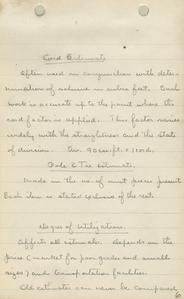 Cord Estimate
Often used in conjunction with deter-
mination of volume in cubic feet. Such
work is accurate up to the point where the
cord factor is applied. This factor varies
widely with the straightness and the state
of division. Av. 90 cu. ft. = 1 cord.
Pole & Tie Estimate.
Made in the no. of must pieces present
Each item is stated exclusive of the rest.
Degree of Utilization.
Affects all estimate. Depends on the
price (market for poor grades and small
sizes) and transportation facilities.
Old estimates can never be compared